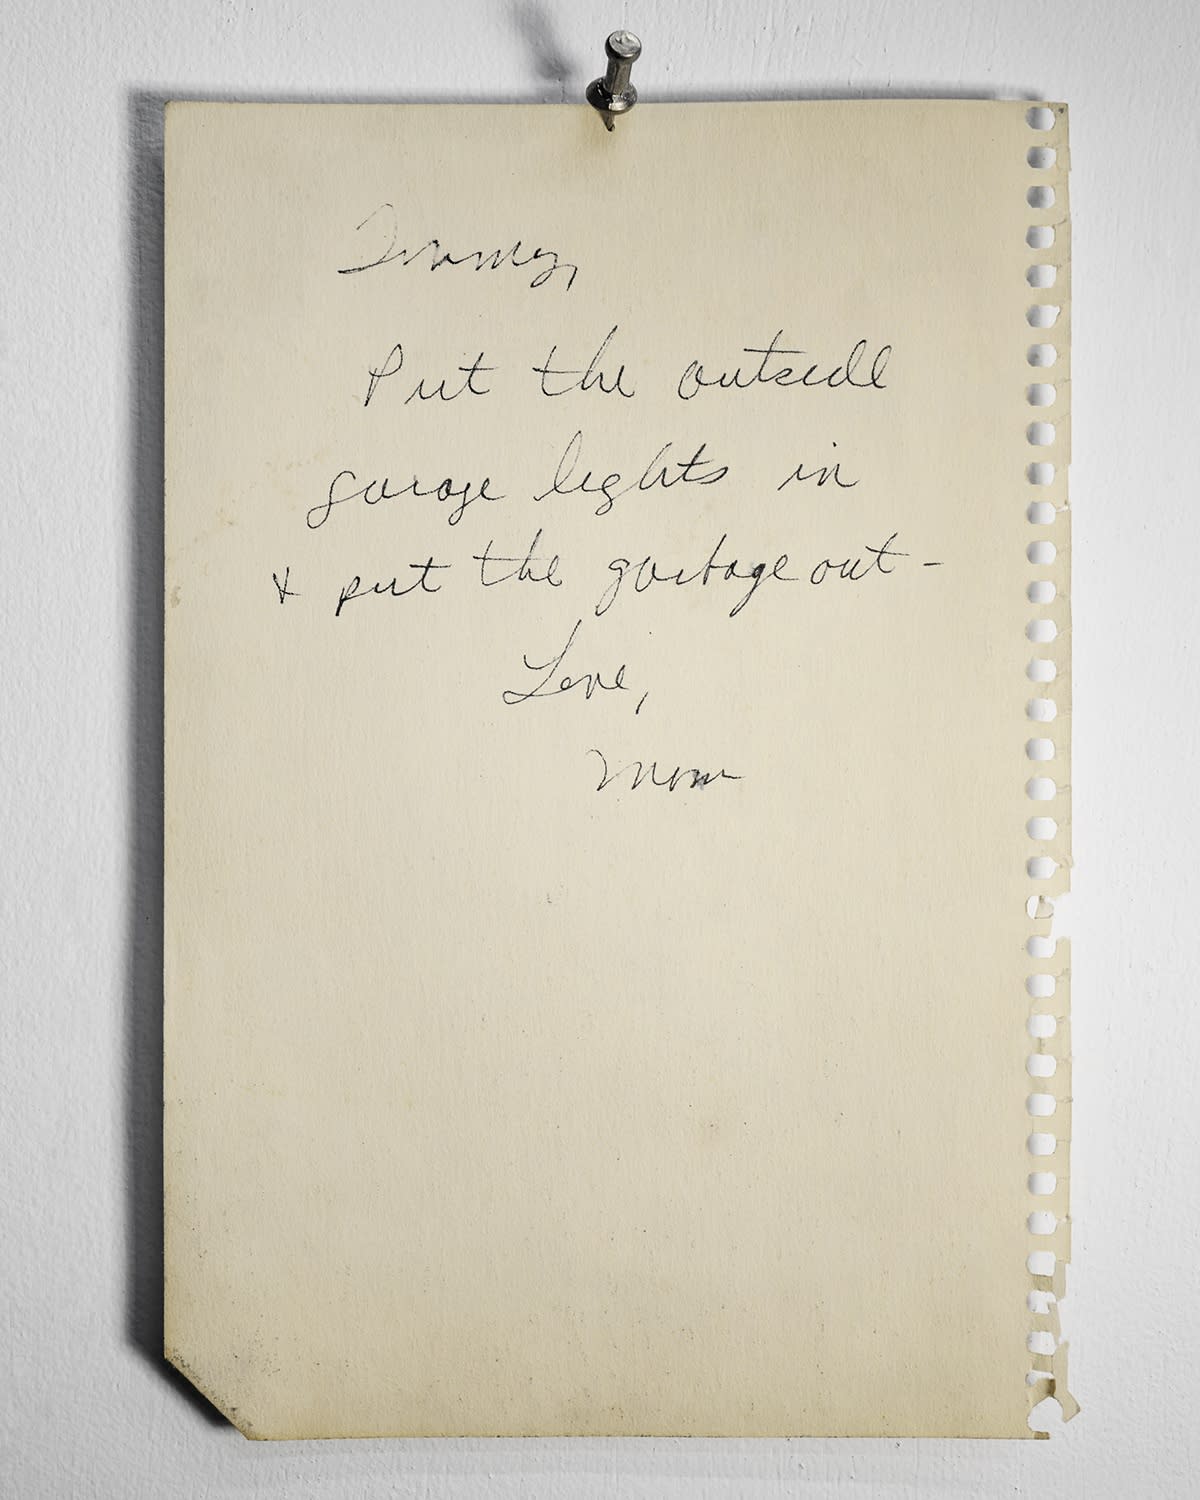 Put the outside
garage lights in
& put the garbage out -
Love,
Mom